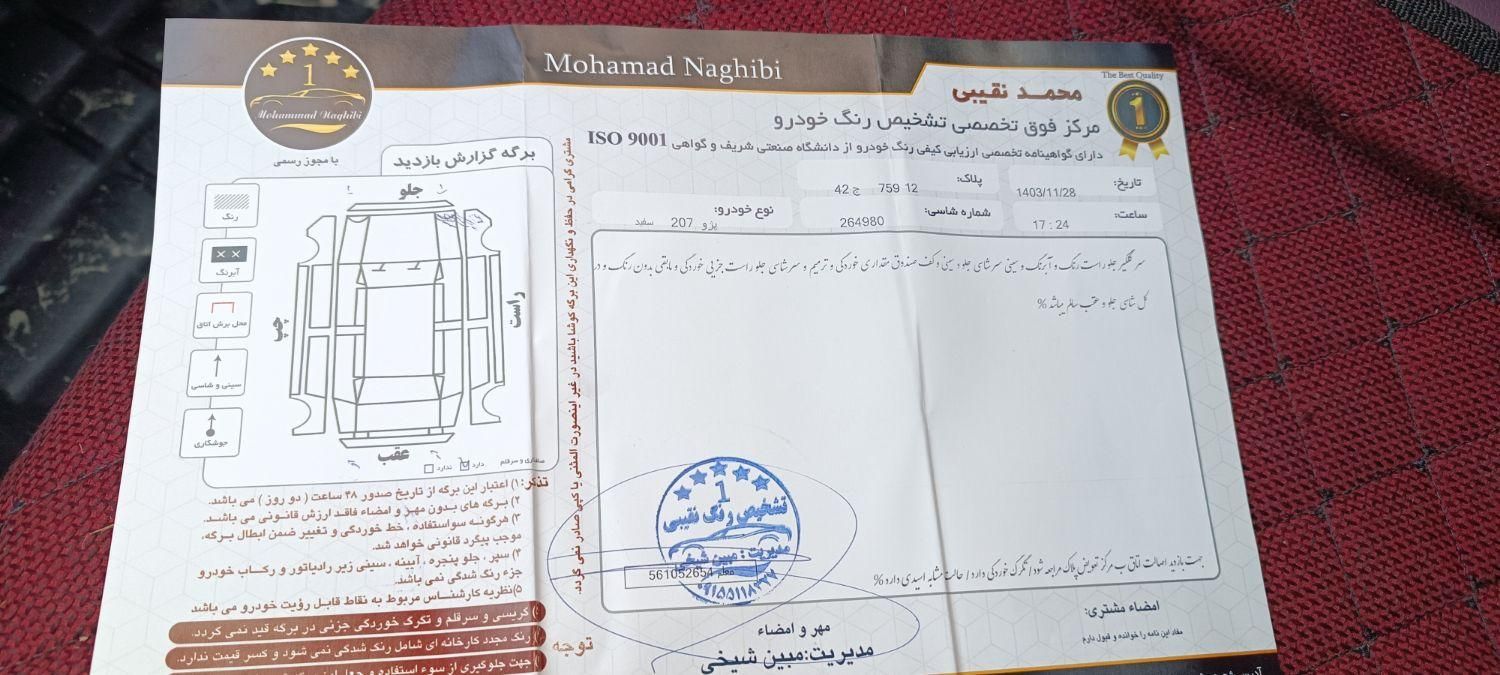 Mohamad Naghibi
The Best Quality
1
محمـد نقیبی
مرکز فوق تخصصی تشخیص رنگ خودرو
دارای گواهینامه تخصصی ارزیابی کیفی رنگ خودرو از دانشگاه صنعتی شریف و گواهی ISO 9001
تاریخ: 1403/11/28
پلاک: 12 759 ج 42
ساعت: 17 : 24
شماره شاسی: 264980
نوع خودرو: پژو 207 سفید
سر گلگیر جلو راست رنگ و آبرنگ و سینی سرشاسی جلو و سینی و کف صندوق مقداری خوردگی و ترمیم و سرشاسی جلو راست جزیی خوردگی و مابقی بدون رنگ و در
کل شاسی جلو و عقب سالم میباشد %
جهت بازدید اصالت اتاق ب مرکز تعویض پلاک مراجعه شود / تگرگ خوردگی دارد / حالت مشابه اسیدی دارد %
امضاء مشتری:
مفاد این نامه را خوانده و قبول دارم
مهر و امضاء
مدیریت: مبین شیخی
1
تشخیص رنگ نقیبی
مدیریت: مبین شیخی
561052654
مشتری گرامی در حفظ و نگهداری این برگه کوشا باشید در غیر اینصورت المثنی یا کپی صادر نمی گردد.
1
Mohammad Naghibi
با مجوز رسمی
برگه گزارش بازدید
جلو
رنگ
آبرنگ
محل برش اتاق
سینی و شاسی
جوشکاری
چپ
راست
عقب
دارد
ندارد
تذکر: ۱) اعتبار این برگه از تاریخ صدور ۴۸ ساعت ( دو روز ) می باشد.
۲) برگه های بدون مهر و امضاء فاقد ارزش قانونی می باشد.
۳) هرگونه سواستفاده، خط خوردگی و تغییر ضمن ابطال برگه،
موجب پیگرد قانونی خواهد شد.
۴) سپر ، جلو پنجره ، آیینه ، سینی زیر رادیاتور و رکاب خودرو
جزء رنگ شدگی نمی باشد.
۵) نظریه کارشناس مربوط به نقاط قابل رؤیت خودرو می باشد
) گریسی و سرقلم و تگرگ خوردگی جزئی در برگه قید نمی گردد.
) رنگ مجدد کارخانه ای شامل رنگ شدگی نمی شود و کسر قیمت ندارد.
توجه
) جهت جلوگیری از سوء استفاده و